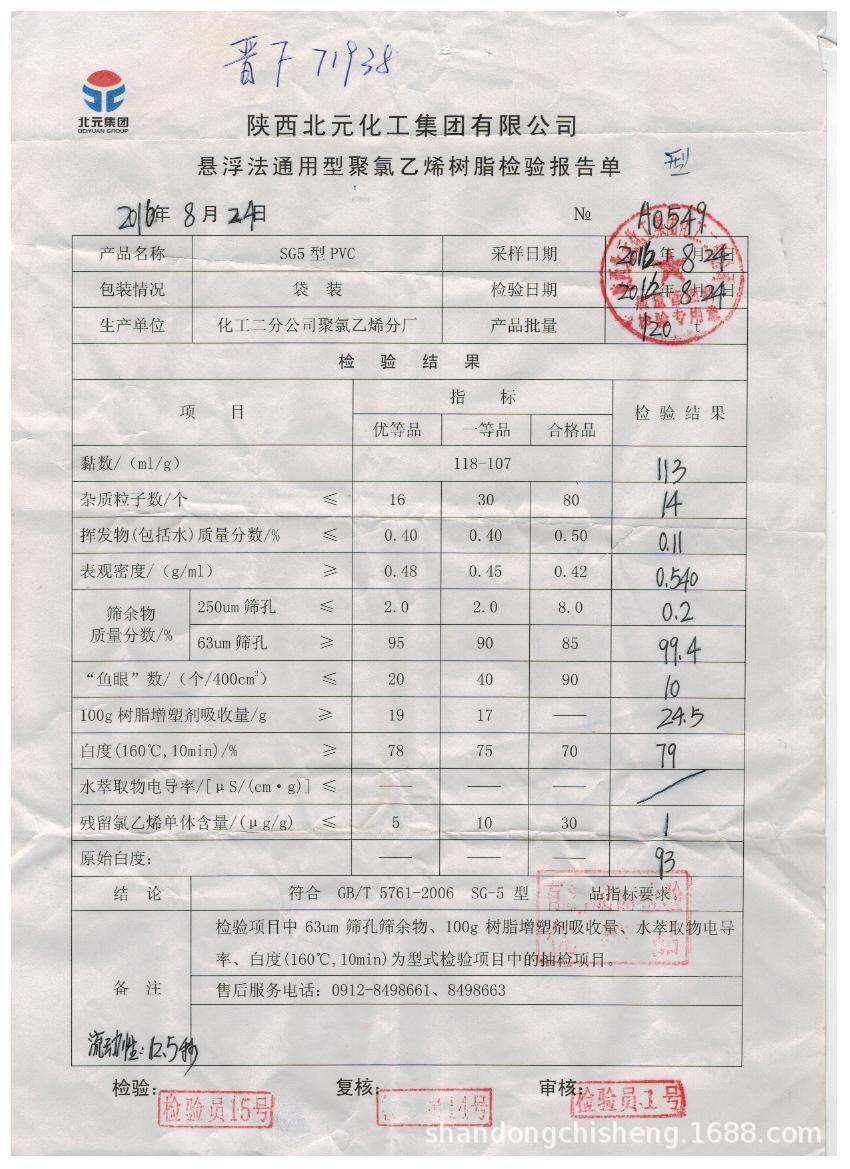 晋F 71938
北元集团
BEIYUAN GROUP
陕西北元化工集团有限公司
悬浮法通用型聚氯乙烯树脂检验报告单 型
2016年 8月24日 № A0549
产品名称 SG5 型 PVC 采样日期 2016年 8月24日
包装情况 袋 装 检验日期 2016年 8月24日
生产单位 化工二分公司聚氯乙烯分厂 产品批量 120 t
检验专用章
检 验 结 果
项 目 指 标 检 验 结 果
优等品 一等品 合格品
黏数/（ml/g） 118-107 113
杂质粒子数/个 ≤ 16 30 80 14
挥发物(包括水)质量分数/% ≤ 0.40 0.40 0.50 0.11
表观密度/（g/ml） ≥ 0.48 0.45 0.42 0.540
筛余物 质量分数/% 250um 筛孔 ≤ 2.0 2.0 8.0 0.2
63um 筛孔 ≥ 95 90 85 99.4
“鱼眼”数/（个/400cm²） ≤ 20 40 90 10
100g 树脂增塑剂吸收量/g ≥ 19 17 —— 24.5
白度(160℃,10min)/% ≥ 78 75 70 79
水萃取物电导率/[μS/(cm·g)] ≤ —— —— —— /
残留氯乙烯单体含量/(μg/g) ≤ 5 10 30 1
原始白度： —— —— —— 93
结 论 符合 GB/T 5761-2006 SG-5 型 品指标要求。
备 注 检验项目中 63um 筛孔筛余物、100g 树脂增塑剂吸收量、水萃取物电导
率、白度(160℃,10min)为型式检验项目中的抽检项目。
售后服务电话：0912-8498661、8498663
流动性：12.5秒
检验： 检验员15号 复核： 14号 审核： 检验员1号
shandongchisheng.1688.com